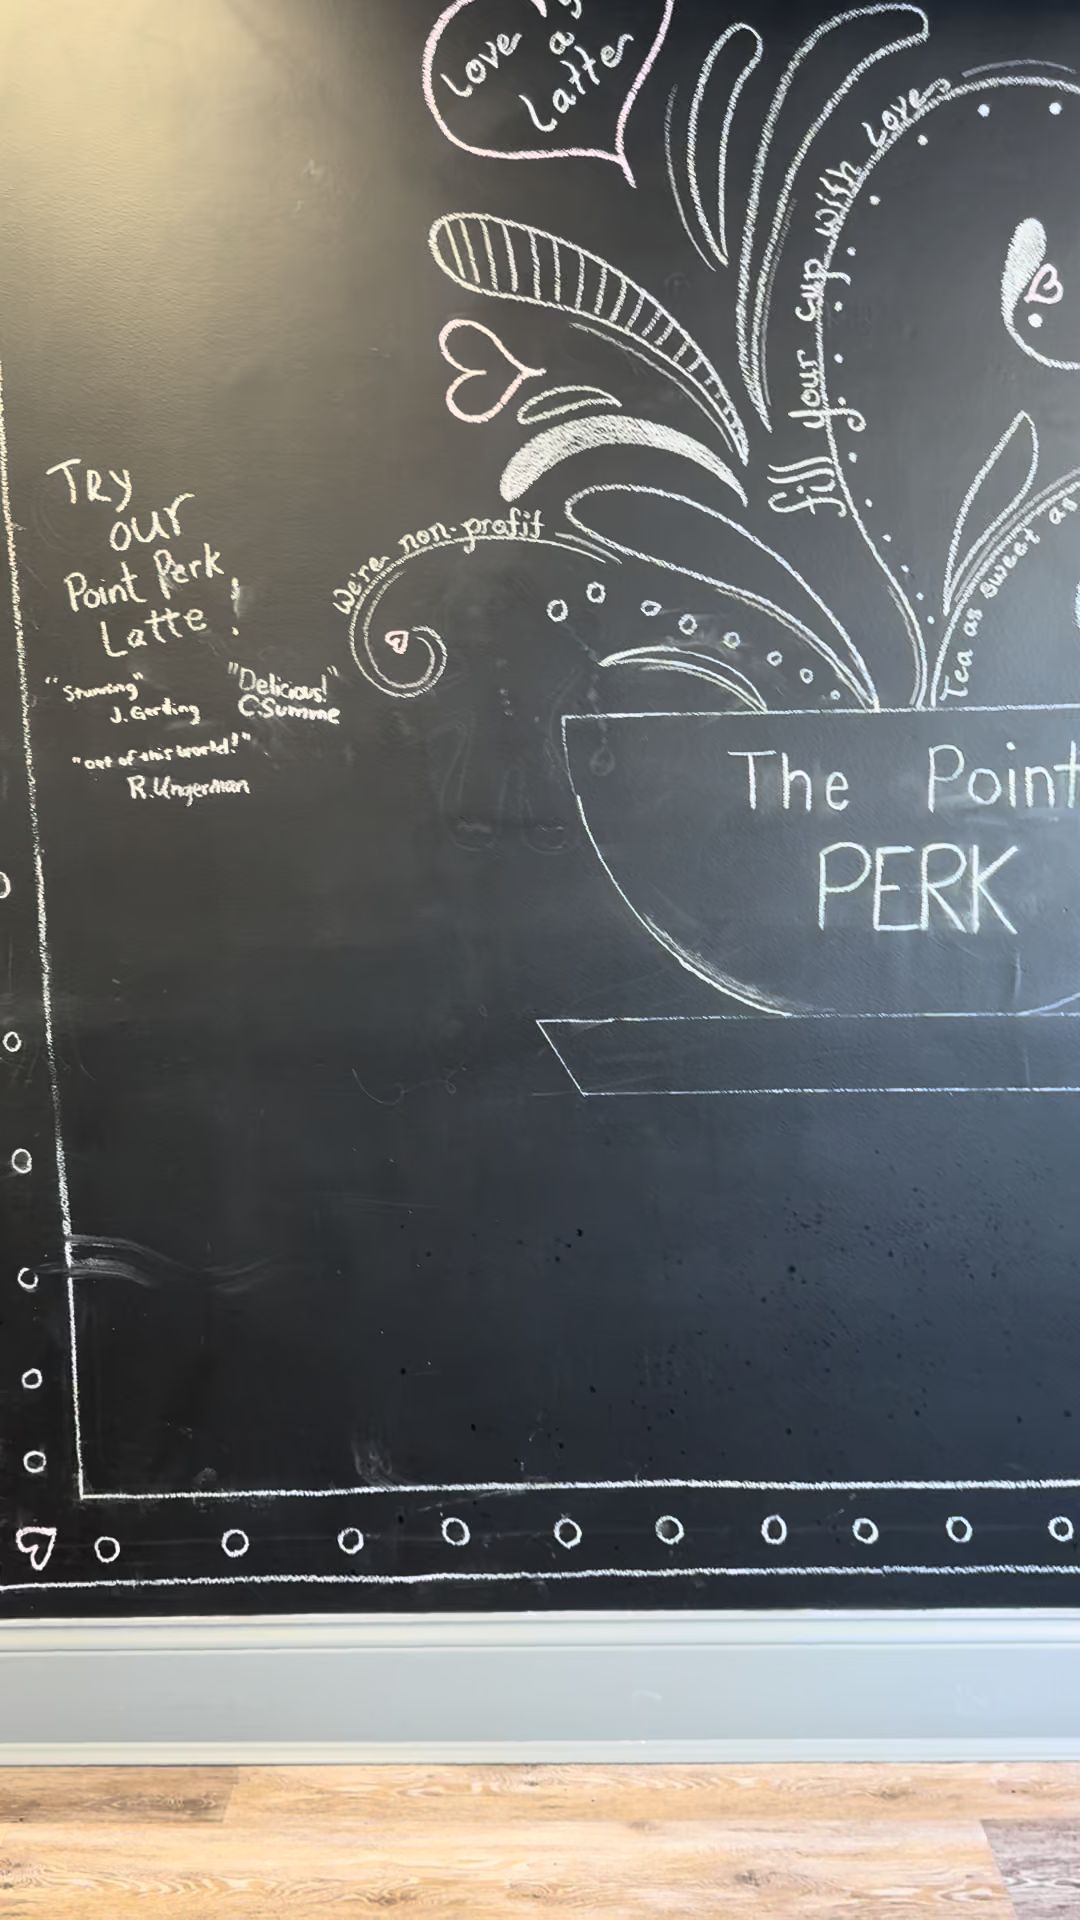 Love
a
Latte
fill your cup with Love
We're non-profit
Tea as sweet as
TRY
our
Point Perk
Latte!
"Stunning"
J. Gerding
"Delicious!"
C. Summe
"out of this world!"
R. Ungerman
The Point
PERK